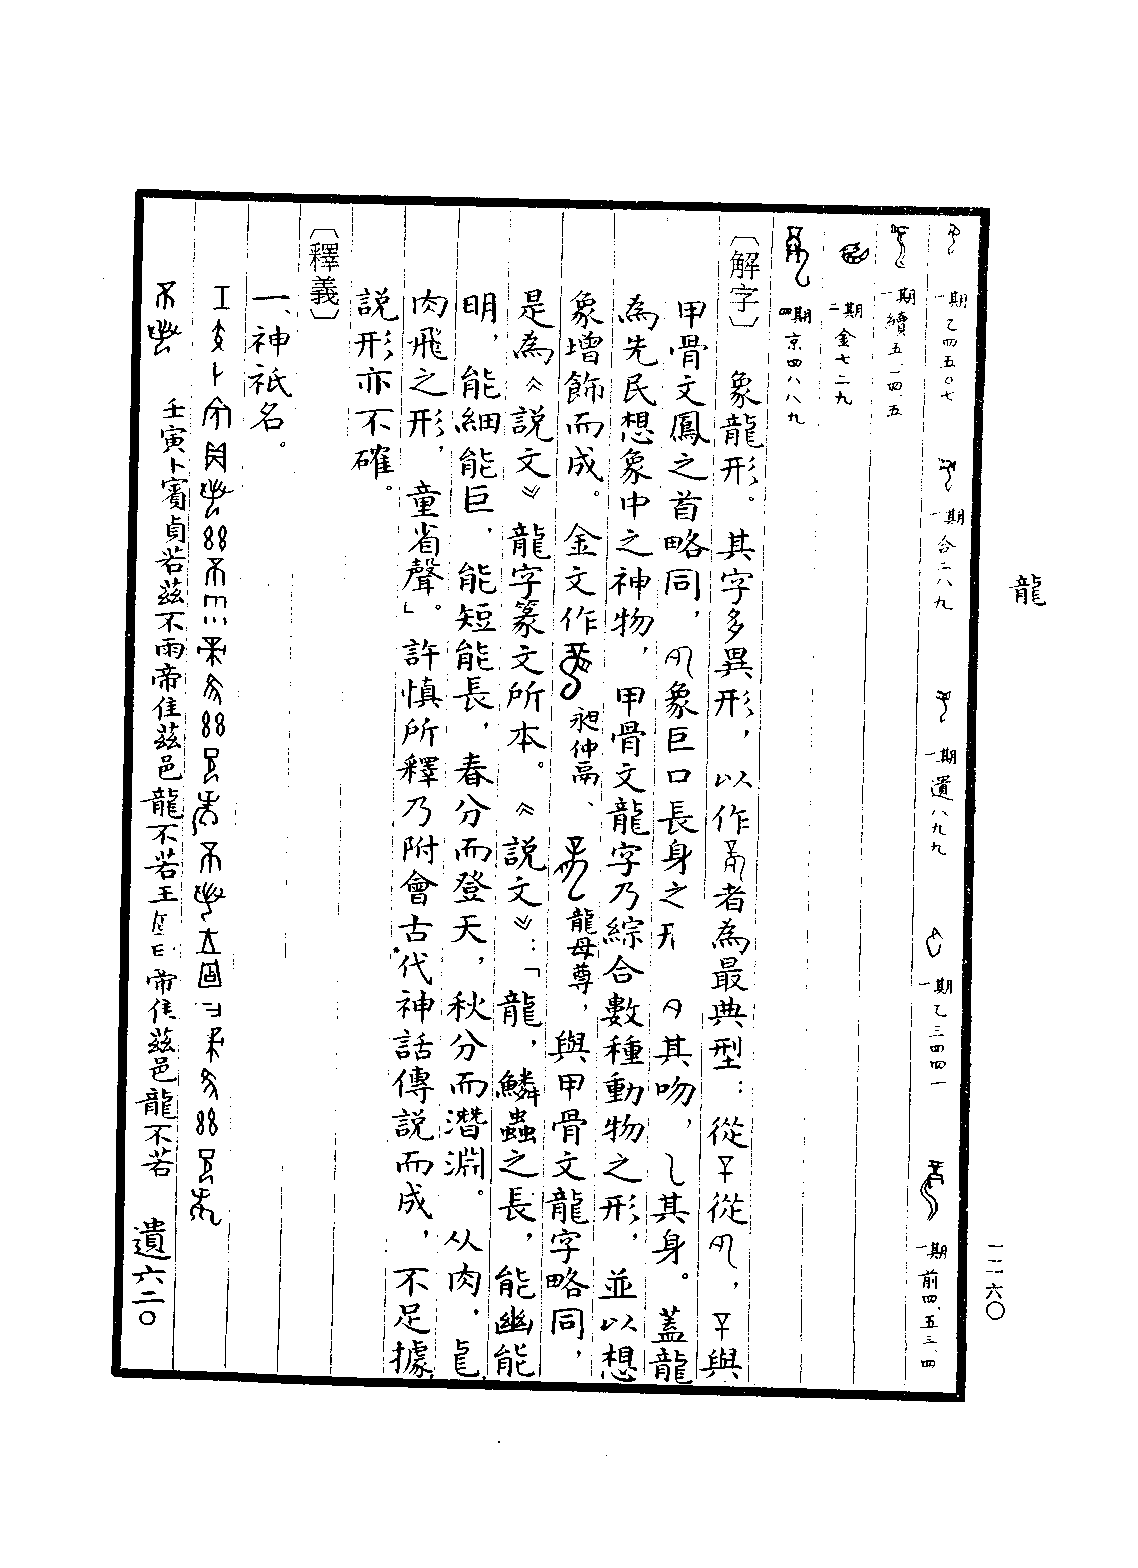 龍
一二六〇
一期 乙四五〇七
一期 合二八九
一期 遺八九九
一期 乙三四四一
一期 前四.五三.四
一期 續五.一四.五
二期 金七二九
四期 京四八八九
〔解字〕 象龍形。其字多異形，以作者為最典型：從從，與
甲骨文鳳之首略同，象巨口長身之形其吻，其身。蓋龍
為先民想象中之神物，甲骨文龍字乃綜合數種動物之形，並以想
象增飾而成。金文作昶仲鬲、龍母尊，與甲骨文龍字略同，
是為《說文》龍字篆文所本。《說文》：「龍，鱗蟲之長，能幽能
明，能細能巨，能短能長，春分而登天，秋分而潛淵。从肉，
肉飛之形，童省聲」。許慎所釋乃附會古代神話傳說而成，不足據，
說形亦不確。
〔釋義〕
一、神祇名。
壬寅卜賓貞若茲不雨帝隹茲邑龍不若王曰帝隹茲邑龍不若 遺六二〇